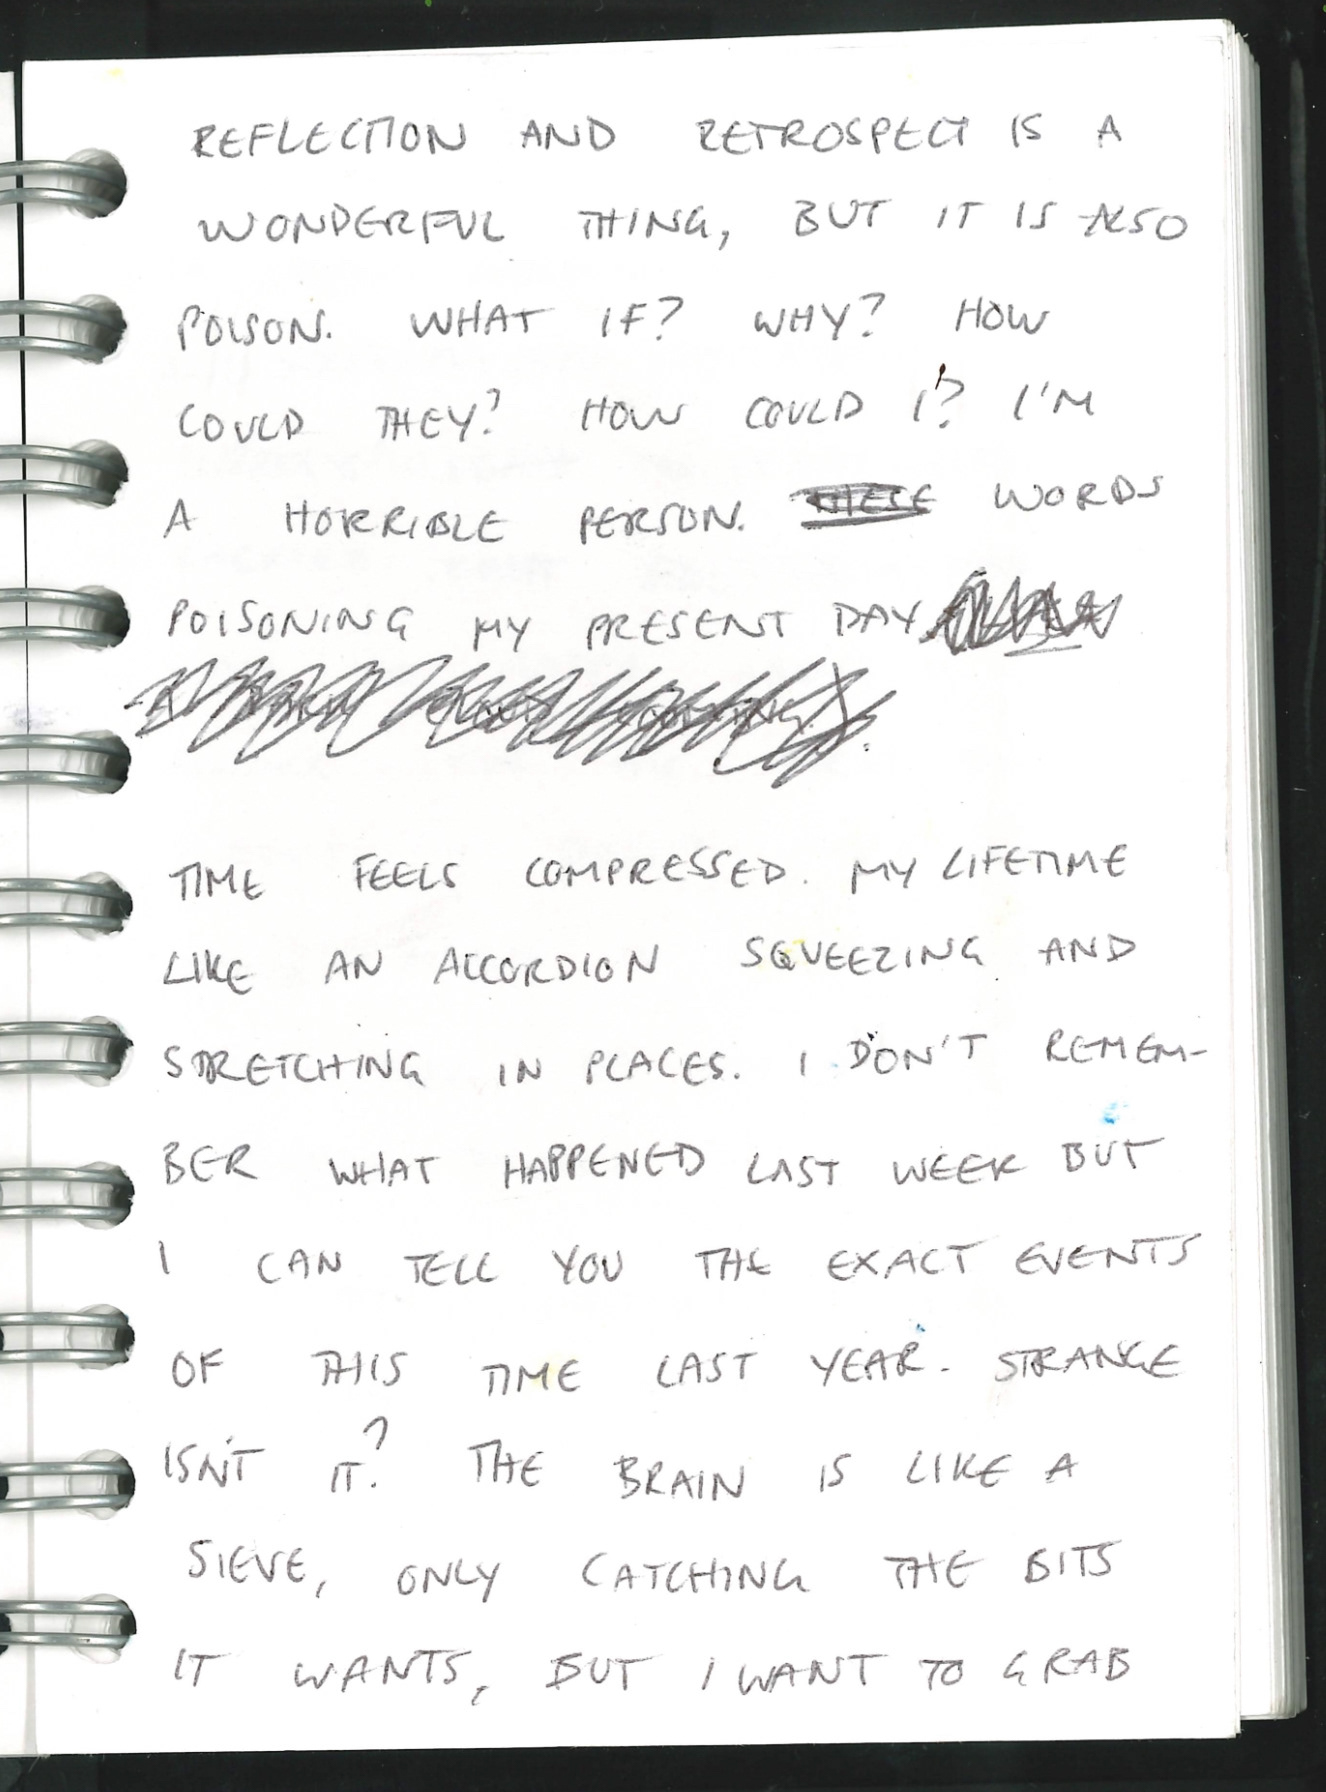 REFLECTION AND RETROSPECT IS A
WONDERFUL THING, BUT IT IS ALSO
POISON. WHAT IF? WHY? HOW
COULD THEY? HOW COULD I? I'M
A HORRIBLE PERSON. THESE WORDS
POISONING MY PRESENT DAY
TIME FEELS COMPRESSED. MY LIFETIME
LIKE AN ACCORDION SQUEEZING AND
STRETCHING IN PLACES. I DON'T REMEM-
BER WHAT HAPPENED LAST WEEK BUT
I CAN TELL YOU THE EXACT EVENTS
OF THIS TIME LAST YEAR. STRANGE
ISN'T IT? THE BRAIN IS LIKE A
SIEVE, ONLY CATCHING THE BITS
IT WANTS, BUT I WANT TO GRAB